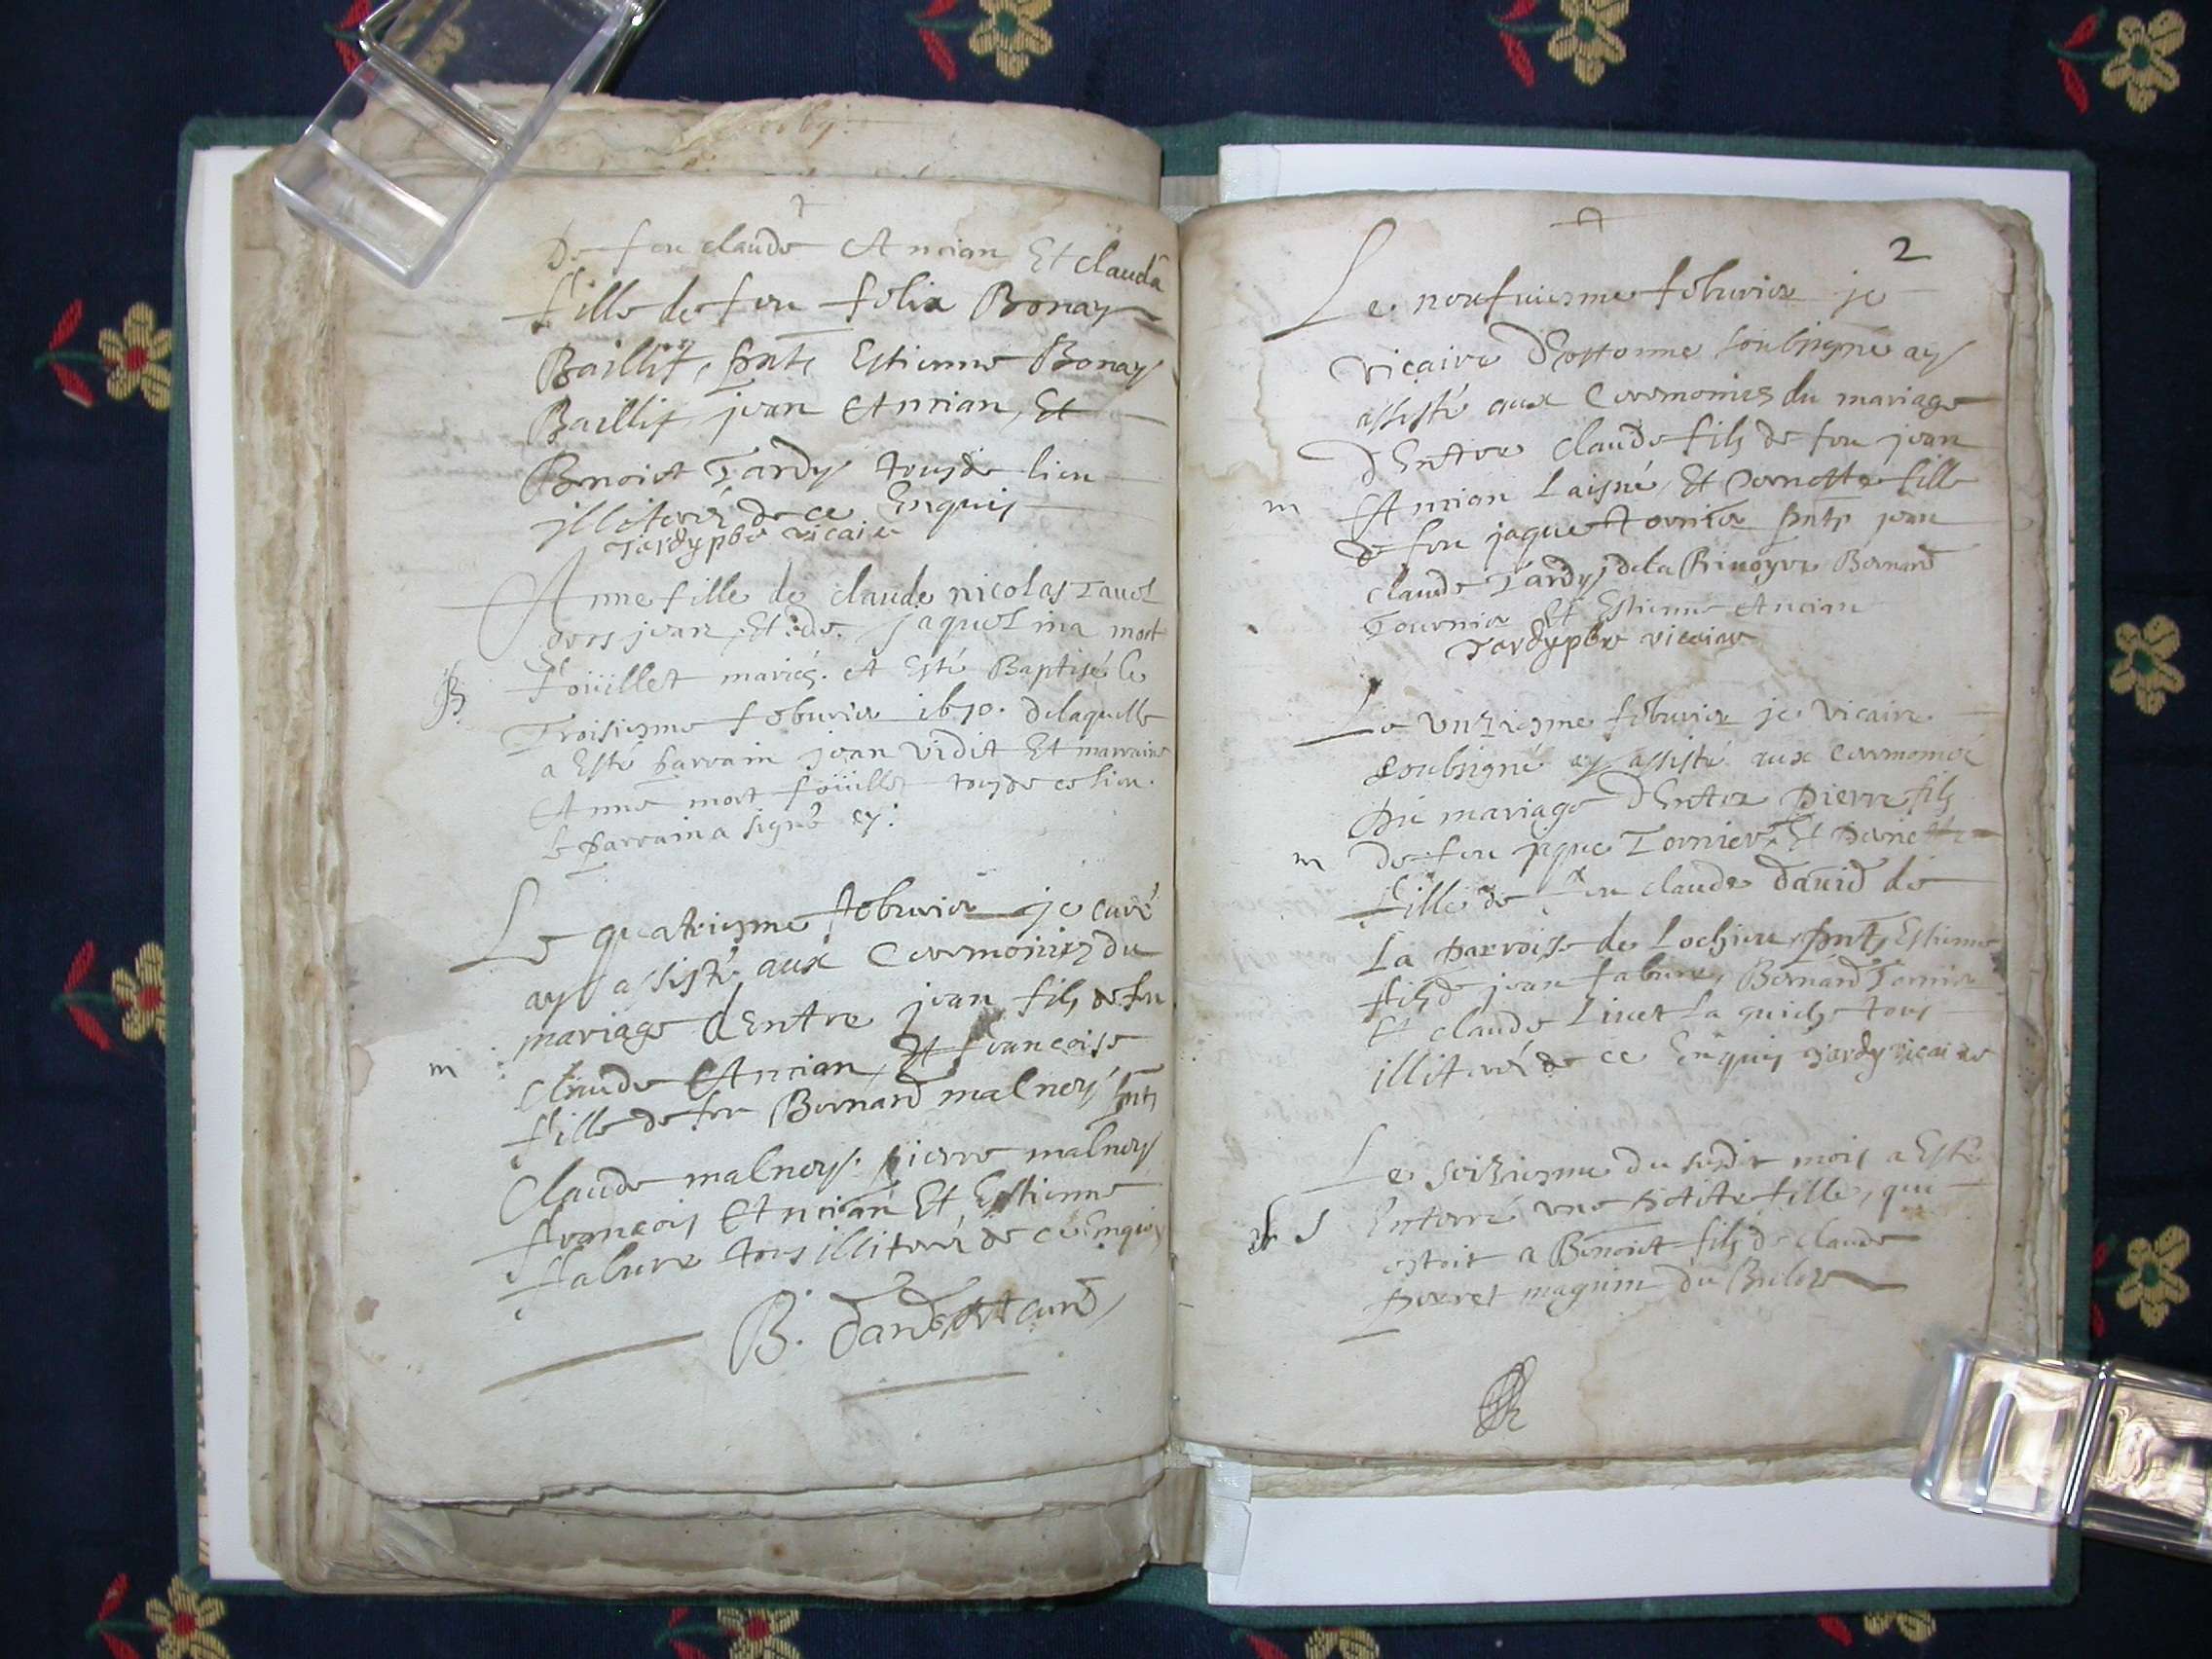 De feu claude Ancian Et clauda
fille de feu felix Bonay
Baillif, pnts Estienne Bonay
Baillif jean Ancian, Et
Benoict Tardy tous de lieu
illiterés de ce Enquis
Tardy pbre vicaire
Anne fille de claude nicolas Tavel
vers jean, Et de jaquelina mort
B
foüillet mariés. A Esté Baptisé le
Troisiesme feburier 1670. delaquelle
a Esté parrain jean vidit Et marraine
Anne mort foüillet tous de ce lieu.
le parrain a signé cy:
Le quatriesme feburier je curé
ay assisté aux Ceremonies du
mariage dEntre jean fils de feu
m
claude Ancian, Et francoise
fille de feu Bernard malney pnts
Claude malney. pierre malney
francois Ancian Et, Estienne
fabure tous illiterés de ce Enquis
B. curé
2
Le neufuiesme feburier je
vicaire soubsigné ay
assisté aux Ceremonies du mariage
dEntre claude fils de feu jean
m
Ancian Laisné, Et pernette fille
de feu jaque Tornier pnts jean
claude Tardy, dela Rivoyre Bernard
Tournier Et Estienne Ancian
Tardy pbre vicaire
Le vnziesme feburier je vicaire
soubsigné ay assisté aux Ceremonies
Du mariage dEntre pierre fils
m
de feu jaque Tornier, Et pernette
fille de feu claude david de
La parroisse de Lochieu, pnts, Estienne
fils de jean fabure, Bernard Tornier
Et claude Livet La quiche tous
illiterés de ce Enquis Tardy vicaire
Le seiziesme du susdit mois a Esté
S
Enterré une petite fille, qui
estoit a Benoict fils de claude
perret magnin du